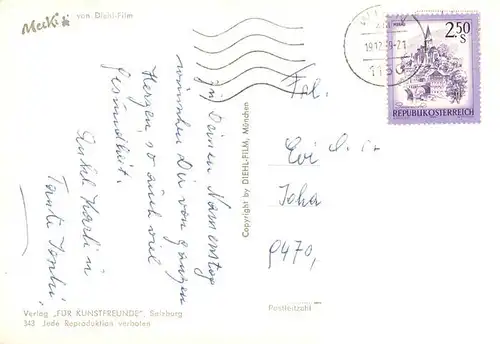 Mecki von Diehl-Film
Zu Deinen Namenstag
wünschen Dir von ganzen
Herzen, so auch viel
Gesundheit.
Onkel Karli u
Tante
Copyright by DIEHL-FILM, München
19.12
1150
2.50
S
REPUBLIK ÖSTERREICH
Frl.
Evi
9470,
Postleitzahl
Verlag „FÜR KUNSTFREUNDE", Salzburg
343 Jede Reproduktion verboten